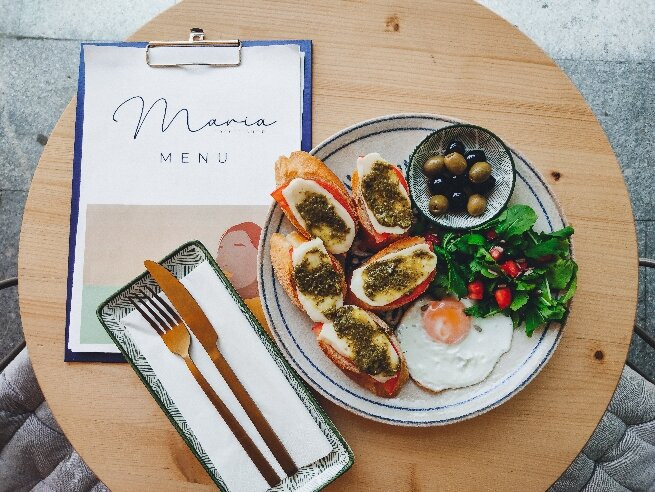 Maria
MENU